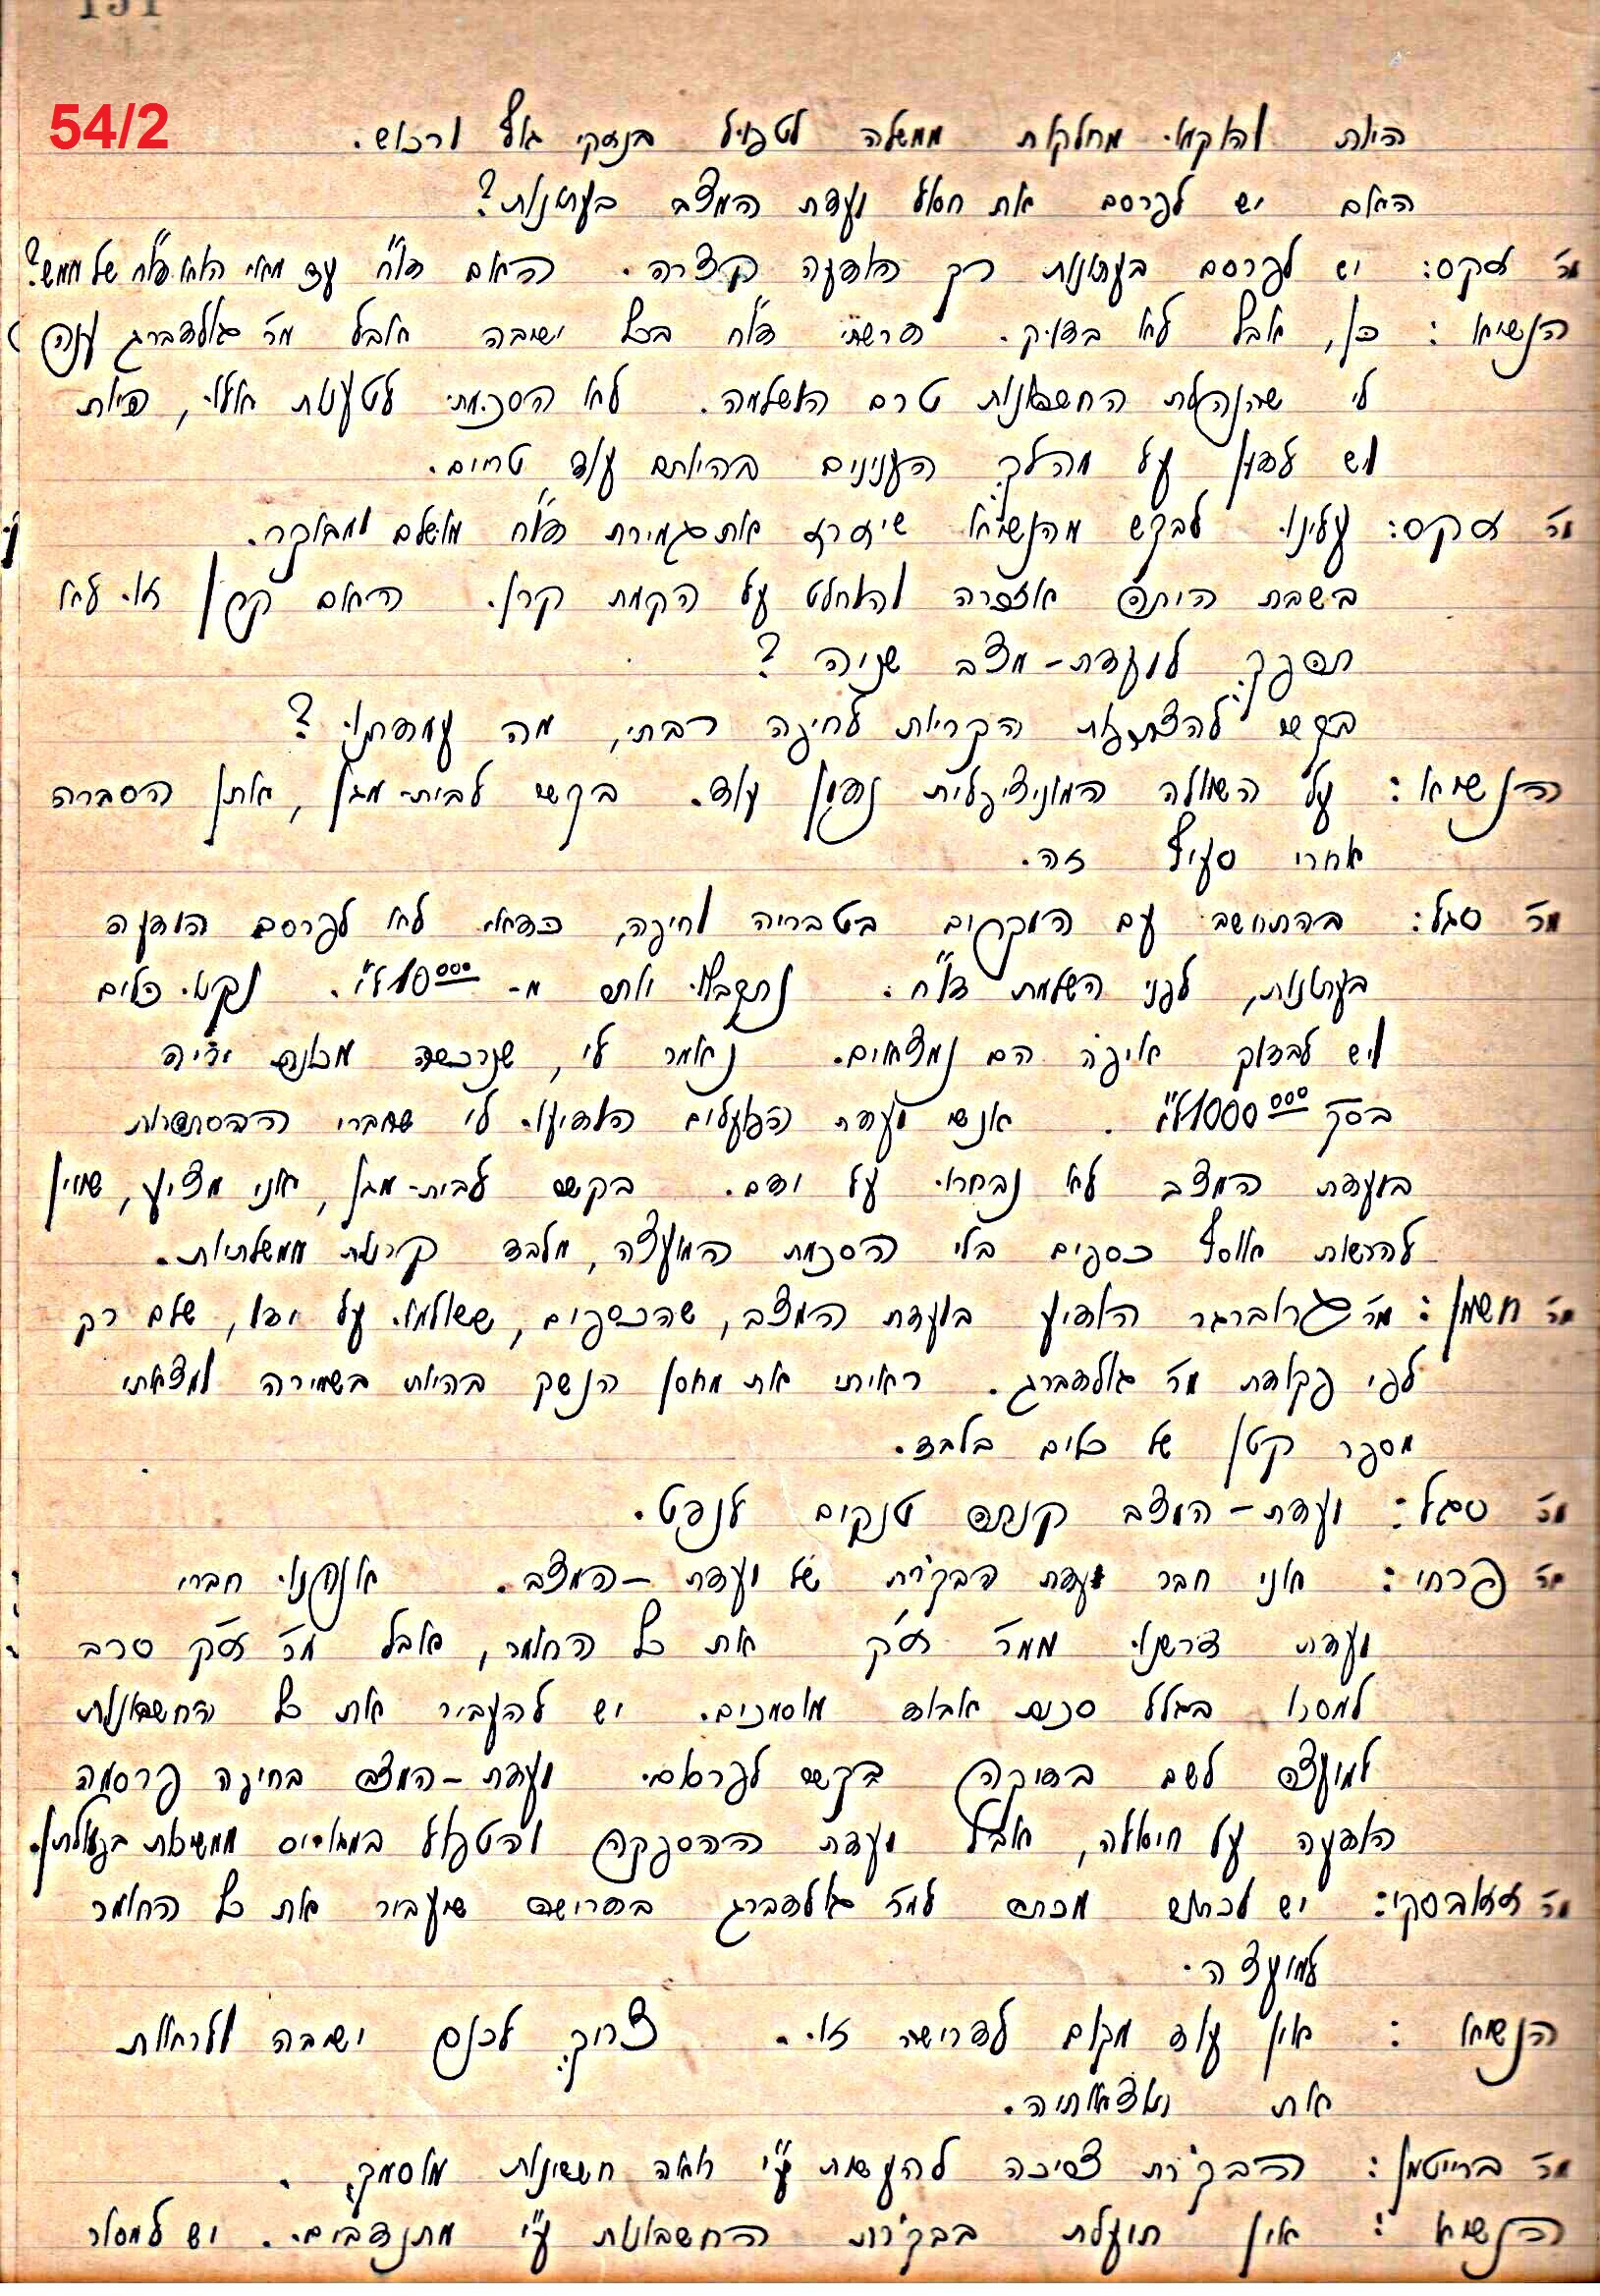 151
54/2
היות והוקמו מחלקות ממשלה לטפול בנזקי גוף ורכוש.
האם יש לפרסם את חסול ועדת המצב בעתונות?
מר זקס: יש לפרסם בעתונות רק הודעה קצרה. האם דו"ח עד מאי הוא דו"ח של ממש?
הנשיא: כן, אבל לא בדיוק. דרשתי דו"ח בכל ישיבה אבל מר גולדברג ענה
לי שהנהלת החשבונות טרם הושלמה. לא הסכמתי לטענות אלו, היות
ויש לדון על מהלך הענינים בהיותם עוד טריים.
מר זקס: עלינו לבקש מהנשיא שיזרז את גמירת דו"ח מושלם ומבוקר.
בשבת היתה אזכרה והוחלט על הקמת קרן. האם קרן זו לא
תהפך לועדת-מצב שניה?
בקשר להצטרפות הקריות לחיפה רבתי, מה עמדתנו?
הנשיא: על השאלה המוניציפלית נדון עוד. בקשר לבית-מגן, אתן הסברה
אחרי סעיף זה.
מר סגל: בהתחשב עם המקרים בטבריה וחיפה, כדאי לא לפרסם הודעה
בעתונות, לפני השלמת דו"ח. נתקבלו יותר מ- 10000 לא"י. נקנו כלים
ויש לבדוק איפה הם נמצאים. נאמר לי, שנרכשה מכונת יריה
בסך 1000000 לא"י. אנשי ועדת הפועלים הודיעו לי שחברי ההסתדרות
בועדת המצב לא נבחרו על ידם. בקשר לבית-מגן, אני מציע, שאין
להרשות אוסף כספים בלי הסכמת המועצה, מלבד קרנות ממשלתיות.
מר חשמן: מר גראברגר הודיע בועדת המצב, שהכספים, ששולמו על ידו, שלם רק
לפי פקודת מר גולדברג. ראיתי את מחסן הנשק בהיותי בשמירה ומצאתי
מספר קטן של כלים בלבד.
מר סגל: ועדת-המצב קנתה טנקים לנפט.
מר פרחי: אני חבר ועדת הבקרת של ועדת-המצב. אנחנו חברי
ועדת דרשנו ממר זק את כל החומר, אבל מר זק סרב
למסרו בגלל סכנת אבוד מוסמכים. יש להעביר את כל החשבונות
למועצה לשם בדיקה בקשר לפרסום. ועדת-המצב בחיפה פרסמה
הודעה על חיסולה, אבל ועדת ההספקה והטפול ממשיכות בפעולתן.
מר יש לכתוב מכתב למר גולדברג בדרישה שיעביר את כל החומר
למועצה.
הנשיא: אין עוד מקום לדרישה זו. צריך לכנס ישיבה ולראות
את תוצאותיה.
מר ברייטמן: הבקרת צריכה להעשות ע"י רואה חשבונות מוסמך.
הנשיא: אין תועלת בבקרת החשבונות ע"י מתנדבים. יש למסור